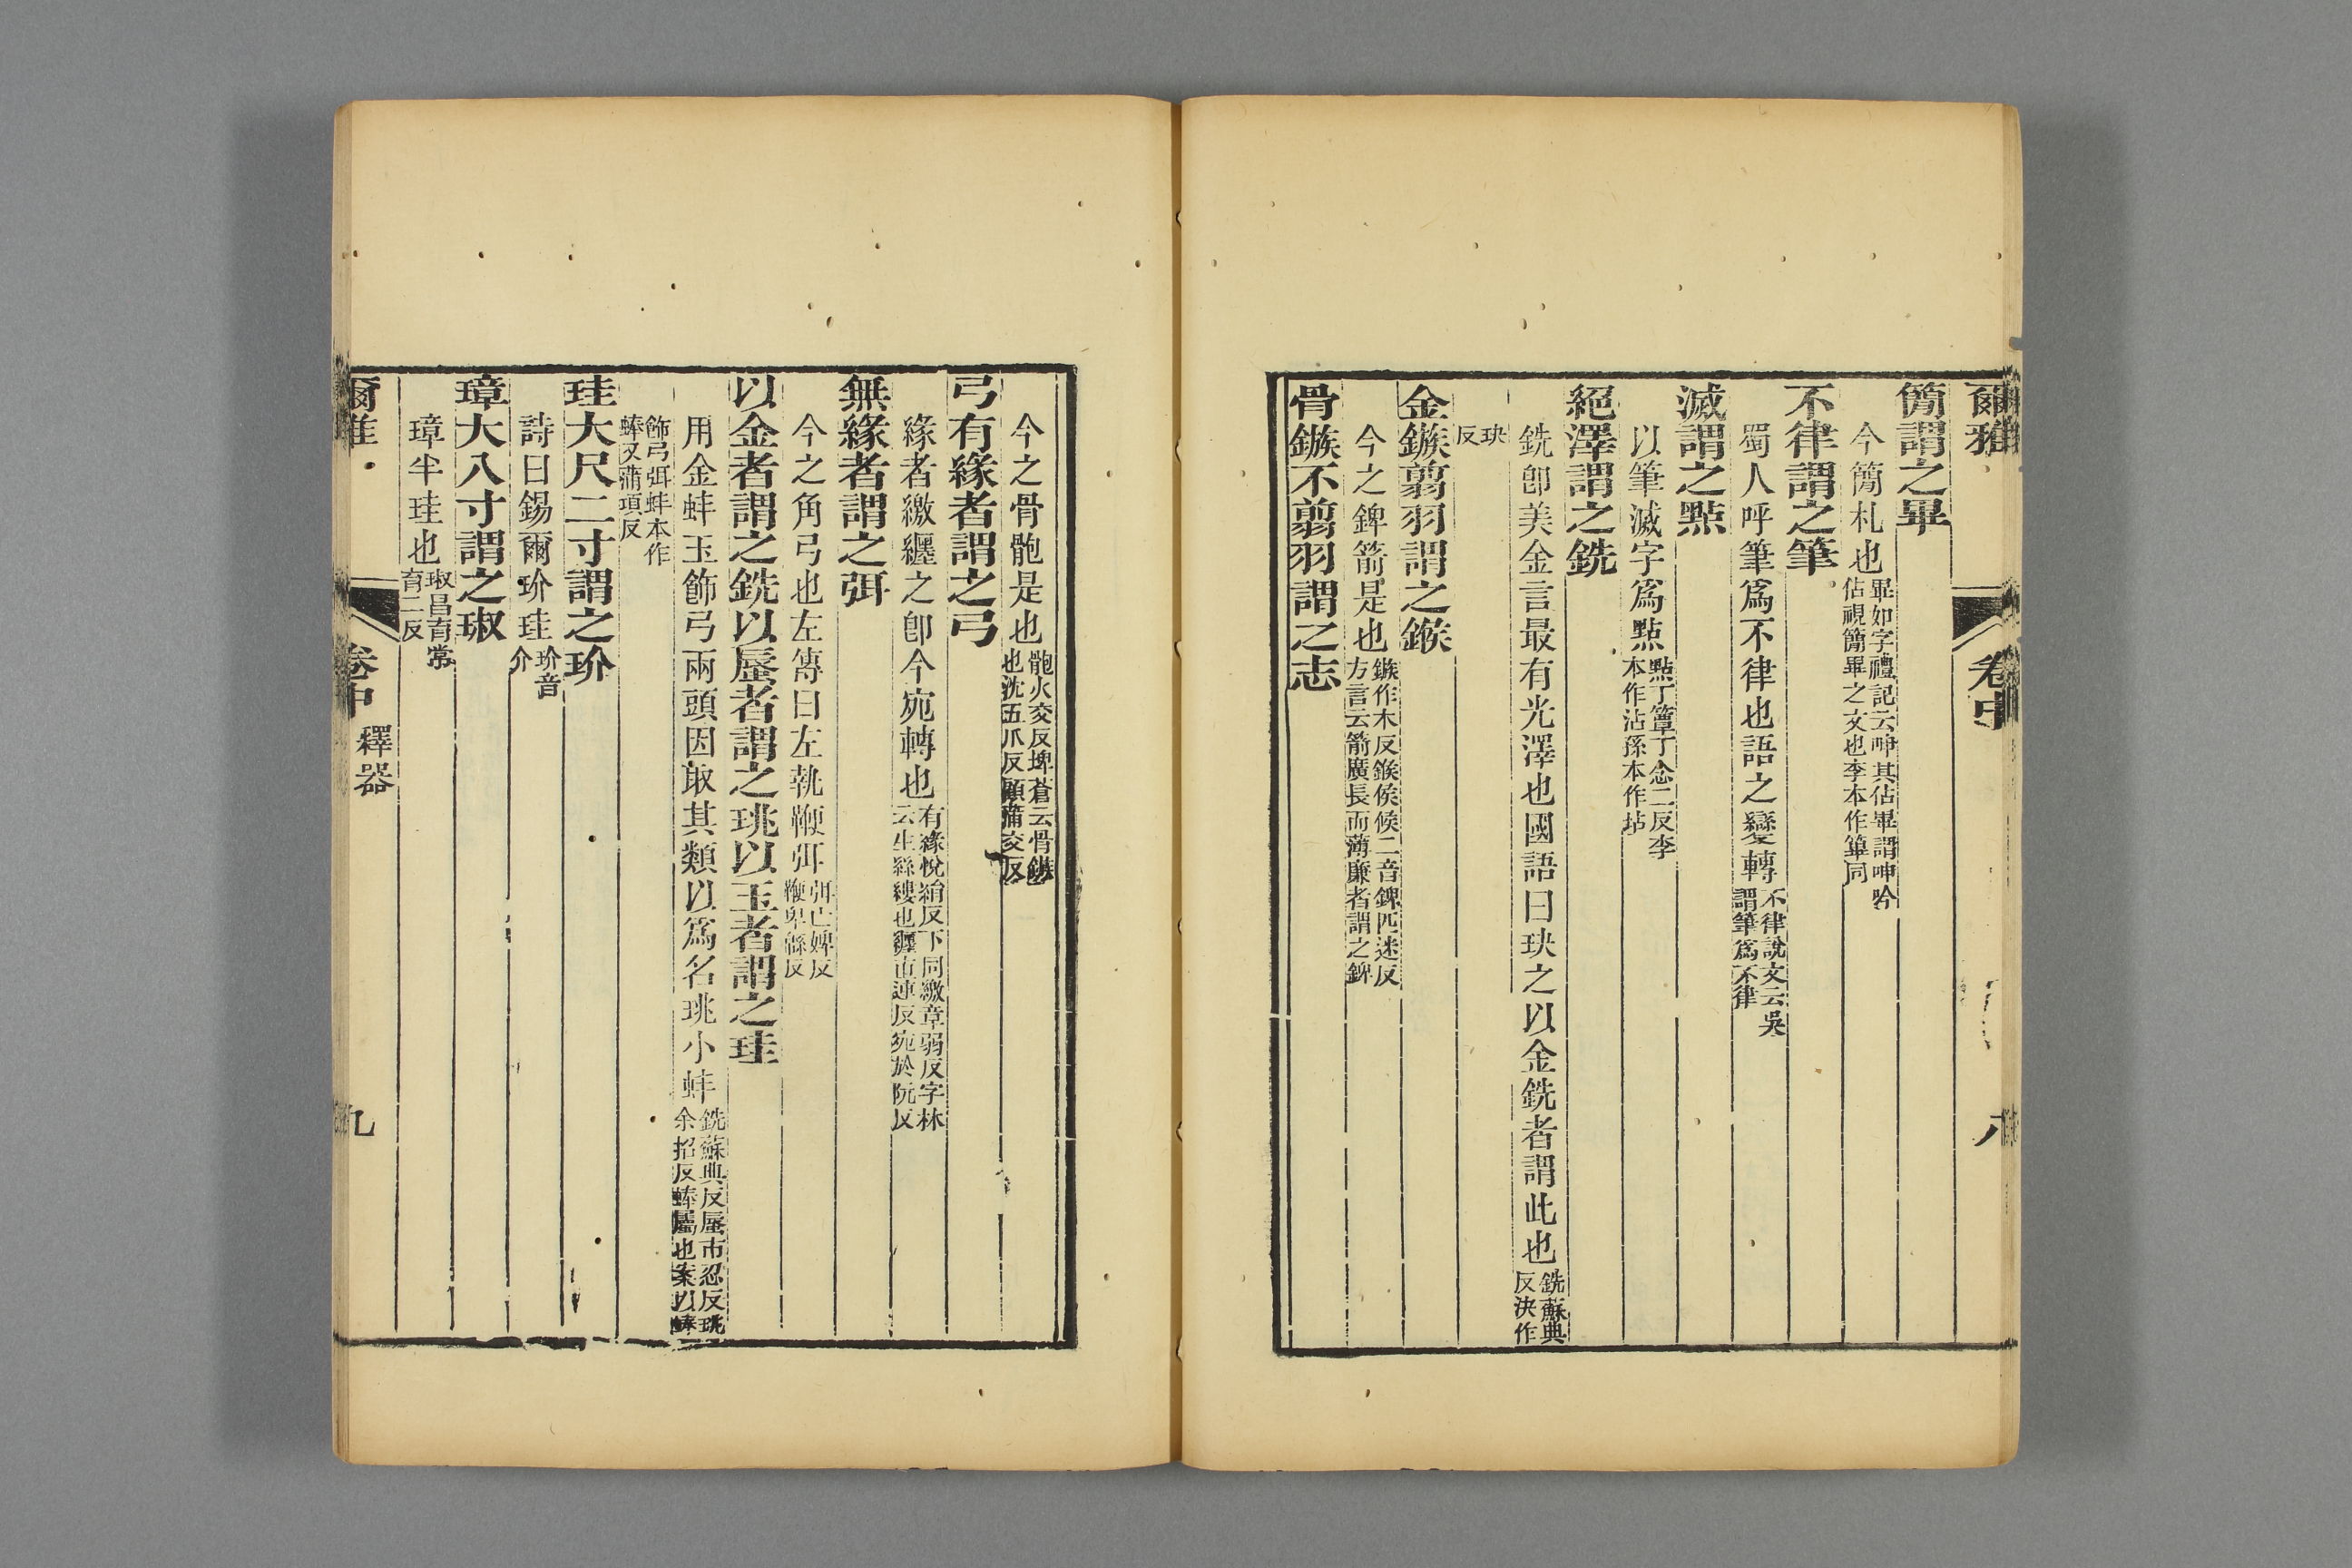 爾雅
卷中
八
簡謂之畢
今簡札也畢如字禮記云呻其佔畢謂呻吟
佔視簡畢之文也李本作篳同
不律謂之筆
蜀人呼筆爲不律也語之變轉不律說文云吳
謂筆爲不律
滅謂之點
以筆滅字爲點點丁簟丁念二反李
本作沾孫本作坫
絕澤謂之銑
銑卽美金言最有光澤也國語曰玦之以金銑者謂此也銑蘇典
反決作
玦
反
金鏃翦羽謂之鍭
今之錍箭是也鏃作木反鍭侯候二音錍匹迷反
方言云箭廣長而薄廉者謂之錍
骨鏃不翦羽謂之志
今之骨骲是也骲火交反埤蒼云骨鏃
也沈五爪反顧蒲交反
弓有緣者謂之弓
緣者繳纏之卽今宛轉也有緣悅絹反下同繳章弱反字林
云生絲縷也纏直連反宛於阮反
無緣者謂之弭
今之角弓也左傳曰左執鞭弭弭亡婢反
鞭卑緜反
以金者謂之銑以蜃者謂之珧以玉者謂之珪
用金蚌玉飾弓兩頭因取其類以爲名珧小蚌銑蘇典反蜃市忍反珧
余招反蜯屬也案以蜯
飾弓弭蚌本作
蜯又蒲項反
珪大尺二寸謂之玠
詩曰錫爾玠珪玠音
介
璋大八寸謂之琡
璋半珪也琡昌育常
育二反
爾雅
卷中
釋器
九